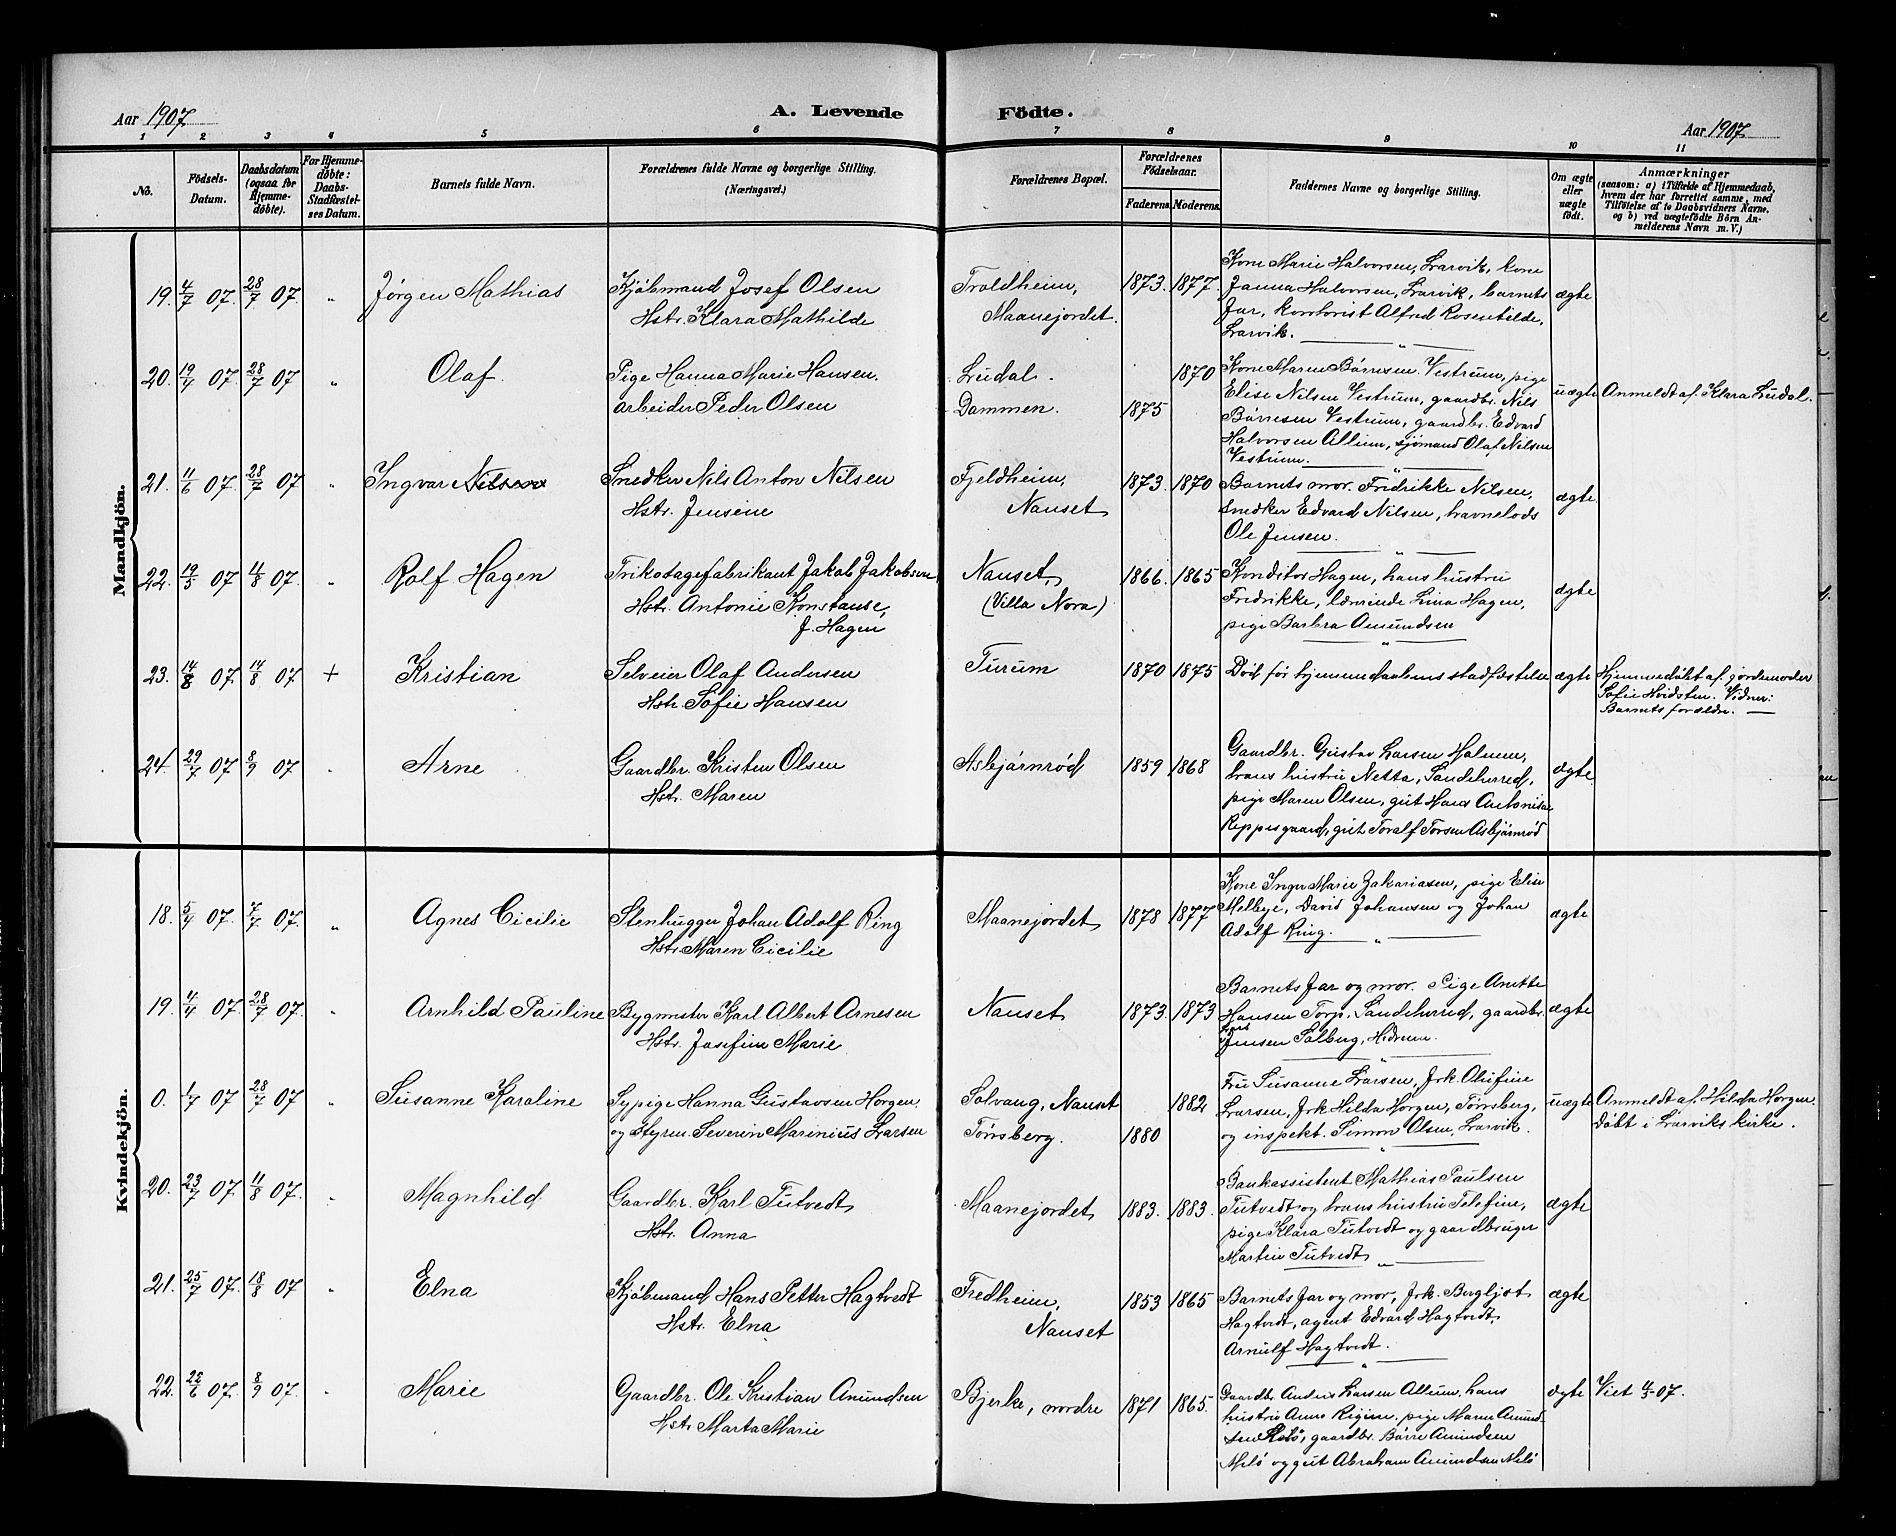 Aar 1907
A. Levende Födte.
Aar 1907
1 2 3 4 5 6 7 8 9 10 11
No.
Födsels-Datum.
Daabsdatum (ogsaa for Hjemme-døbte).
For Hjemme-døbte: Daabs-Stadfæstel-ses Datum.
Barnets fulde Navn.
Forældrenes fulde Navne og borgerlige Stilling.
(Næringsvei.)
Forældrenes Bopæl.
Forældrenes Födselsaar.
Faderens. Moderens.
Faddernes Navne og borgerlige Stilling.
Om ægte eller uægte födt.
Anmærkninger
(saasom: a) i Tilfælde af Hjemmedaab,
hvem der har forrettet samme, med
Tilföielse af to Daabsvidners Navne,
og b) ved uægtefödte Börn An-
melderens Navn m. V.)
Mandkjön.
19. 4/7 07. 28/7 07. " Jørgen Mathias
Kjøbmand Josef Olsen
Hstr. Klara Mathilde
Troldheim,
Maanejordet.
1873. 1877.
Kone Marie Halvorsen, Larvik, kone
Janna Halvorsen, Larvik, barnets
far, kontorist Alfred Rosenkilde,
Larvik.
ægte
20. 19/4 07. 28/7 07 " Olaf.
Pige Hanna Marie Hansen.
arbeider Peder Olsen
Ludal.
Dammen.
1870
1875
Kone Maren Børresen Vestrum, pige
Elise Nilsen Vestrum, gaardbr. Nils
Børresen Vestrum, gaardbr. Edvard
Halvorsen Allum, sjømand Olaf Nilsen
Vestrum.
uægte
Anmeldt af Klara Ludal.
21. 11/6 07. 28/7 07 " Ingvar Nilsen
Snedker Nils Anton Nilsen
Hstr. Jensine
Fjeldheim,
Nanset
1873. 1870
Barnets mor. Fridrikke Nilsen,
snedker Edvard Nilsen, havnelods
Ole Jensen.
ægte
22. 19/5 07 11/8 07. " Rolf Hagen
Trikotagefabrikant Jakob Jakobsen
Hstr. Antonie Konstanse,
f. Hagen
Nanset,
(Villa Nora)
1866. 1865
Konditor Hagen, hans hustru
Fredrikke, lærerinde Lina Hagen,
pige Barbra Amundsen
ægte
23. 14/8 07. 14/8 07 + Kristian
Selveier Olaf Andersen
Hstr. Sofie Hansen
Furum
1870 1875
Død før hjemmedaabens stadfæstelse
ægte
Hjemmedøbt af jordemoder
Sofie Hvidsten. Vidner:
Barnets forældre.
24. 29/7 07 8/9 07 " Arne
Gaardbr. Kristen Olsen
Hstr. Maren
Asbjørnrød
1859 1868
Gaardbr. Gustav Larsen Halmen,
hans hustru Netta, Sandeherred,
pige Maren Olsen, gut Hans Antonisen
Reppesgaard, gut Toralf Torsen Asbjørnrød
ægte
Kvindekjön.
18. 5/4 07. 7/7 07. " Agnes Cicilie
Stenhugger Johan Adolf Ring
Hstr. Maren Cicilie
Maanejordet
1878 1877
Kone Inger Marie Zakariasen, pige Elise
Melbye, David Johansen og Johan
Adolf Ring.
ægte
19. 4/4 07. 28/7 07. " Arnhild Pauline
Bygmester Karl Albert Arnesen
Hstr. Josefine Marie
Nanset
1873. 1873
Barnets far og mor. Pige Anette
Hansen Torp, Sandeherred, gaardbr.
Jensen Solberg, Hedrum.
ægte
0. 1/7 07 28/7 07 " Susanne Karaline
Sypige Hanna Gustavsen Horgen
og styrm. Severin Marinius Larsen
Solvang, Nanset
Tønsberg.
1882
1880
Fru Susanne Larsen, frk. Olufine
Larsen, frk Hilda Horgen, Tønsberg,
og inspekt. Simon Olsen, Larvik.
uægte
Anmeldt af Hilda Horgen.
døbt i Larviks kirke.
20. 23/7 07. 11/8 07. " Magnhild
Gaardbr. Karl Tutvedt
Hstr. Anna
Maanejordet
1883. 1883.
Bankassistent Mathias Paulsen
Tutvedt og hans hustru Telefine,
pige Klara Tutvedt og gaardbruger
Martin Tutvedt
ægte
21. 25/7 07. 18/8 07 " Elna
Kjøbmand Hans Petter Hagtvedt
Hstr. Elna
Fredheim,
Nanset
1853 1865
Barnets far og mor, frk. Bergljot
Hagtvedt, agent Edvard Hagtvedt,
Arnulf Hagtvedt.
ægte
22. 22/6 07. 8/9 07. " Marie
Gaardbr. Ole Kristian Amundsen
Hstr. Marta Marie
Bjerke, nordre
1871 1865.
Gaardbr. Anders Larsen Allum, hans
hustru Anne Regine, pige Maren Amund-
sen Melø, gaardbr. Børre Amundsen
Melø og gut Abraham Amundsen Melø
ægte
Viet 4/5 07.